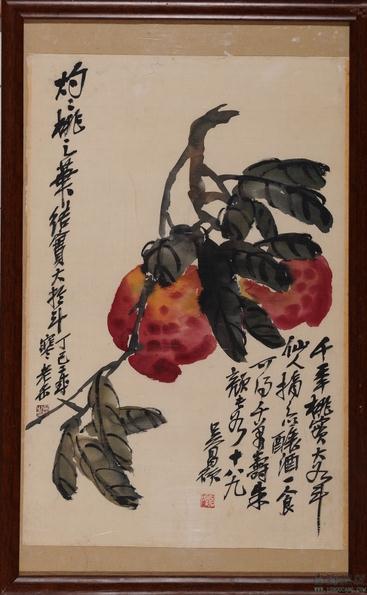 千年桃實大如斗
仙人摘之釀酒一食
可得千萬壽朱
顏長如十八九
吳昌碩
灼々桃之華結實大於斗丁巳
老缶